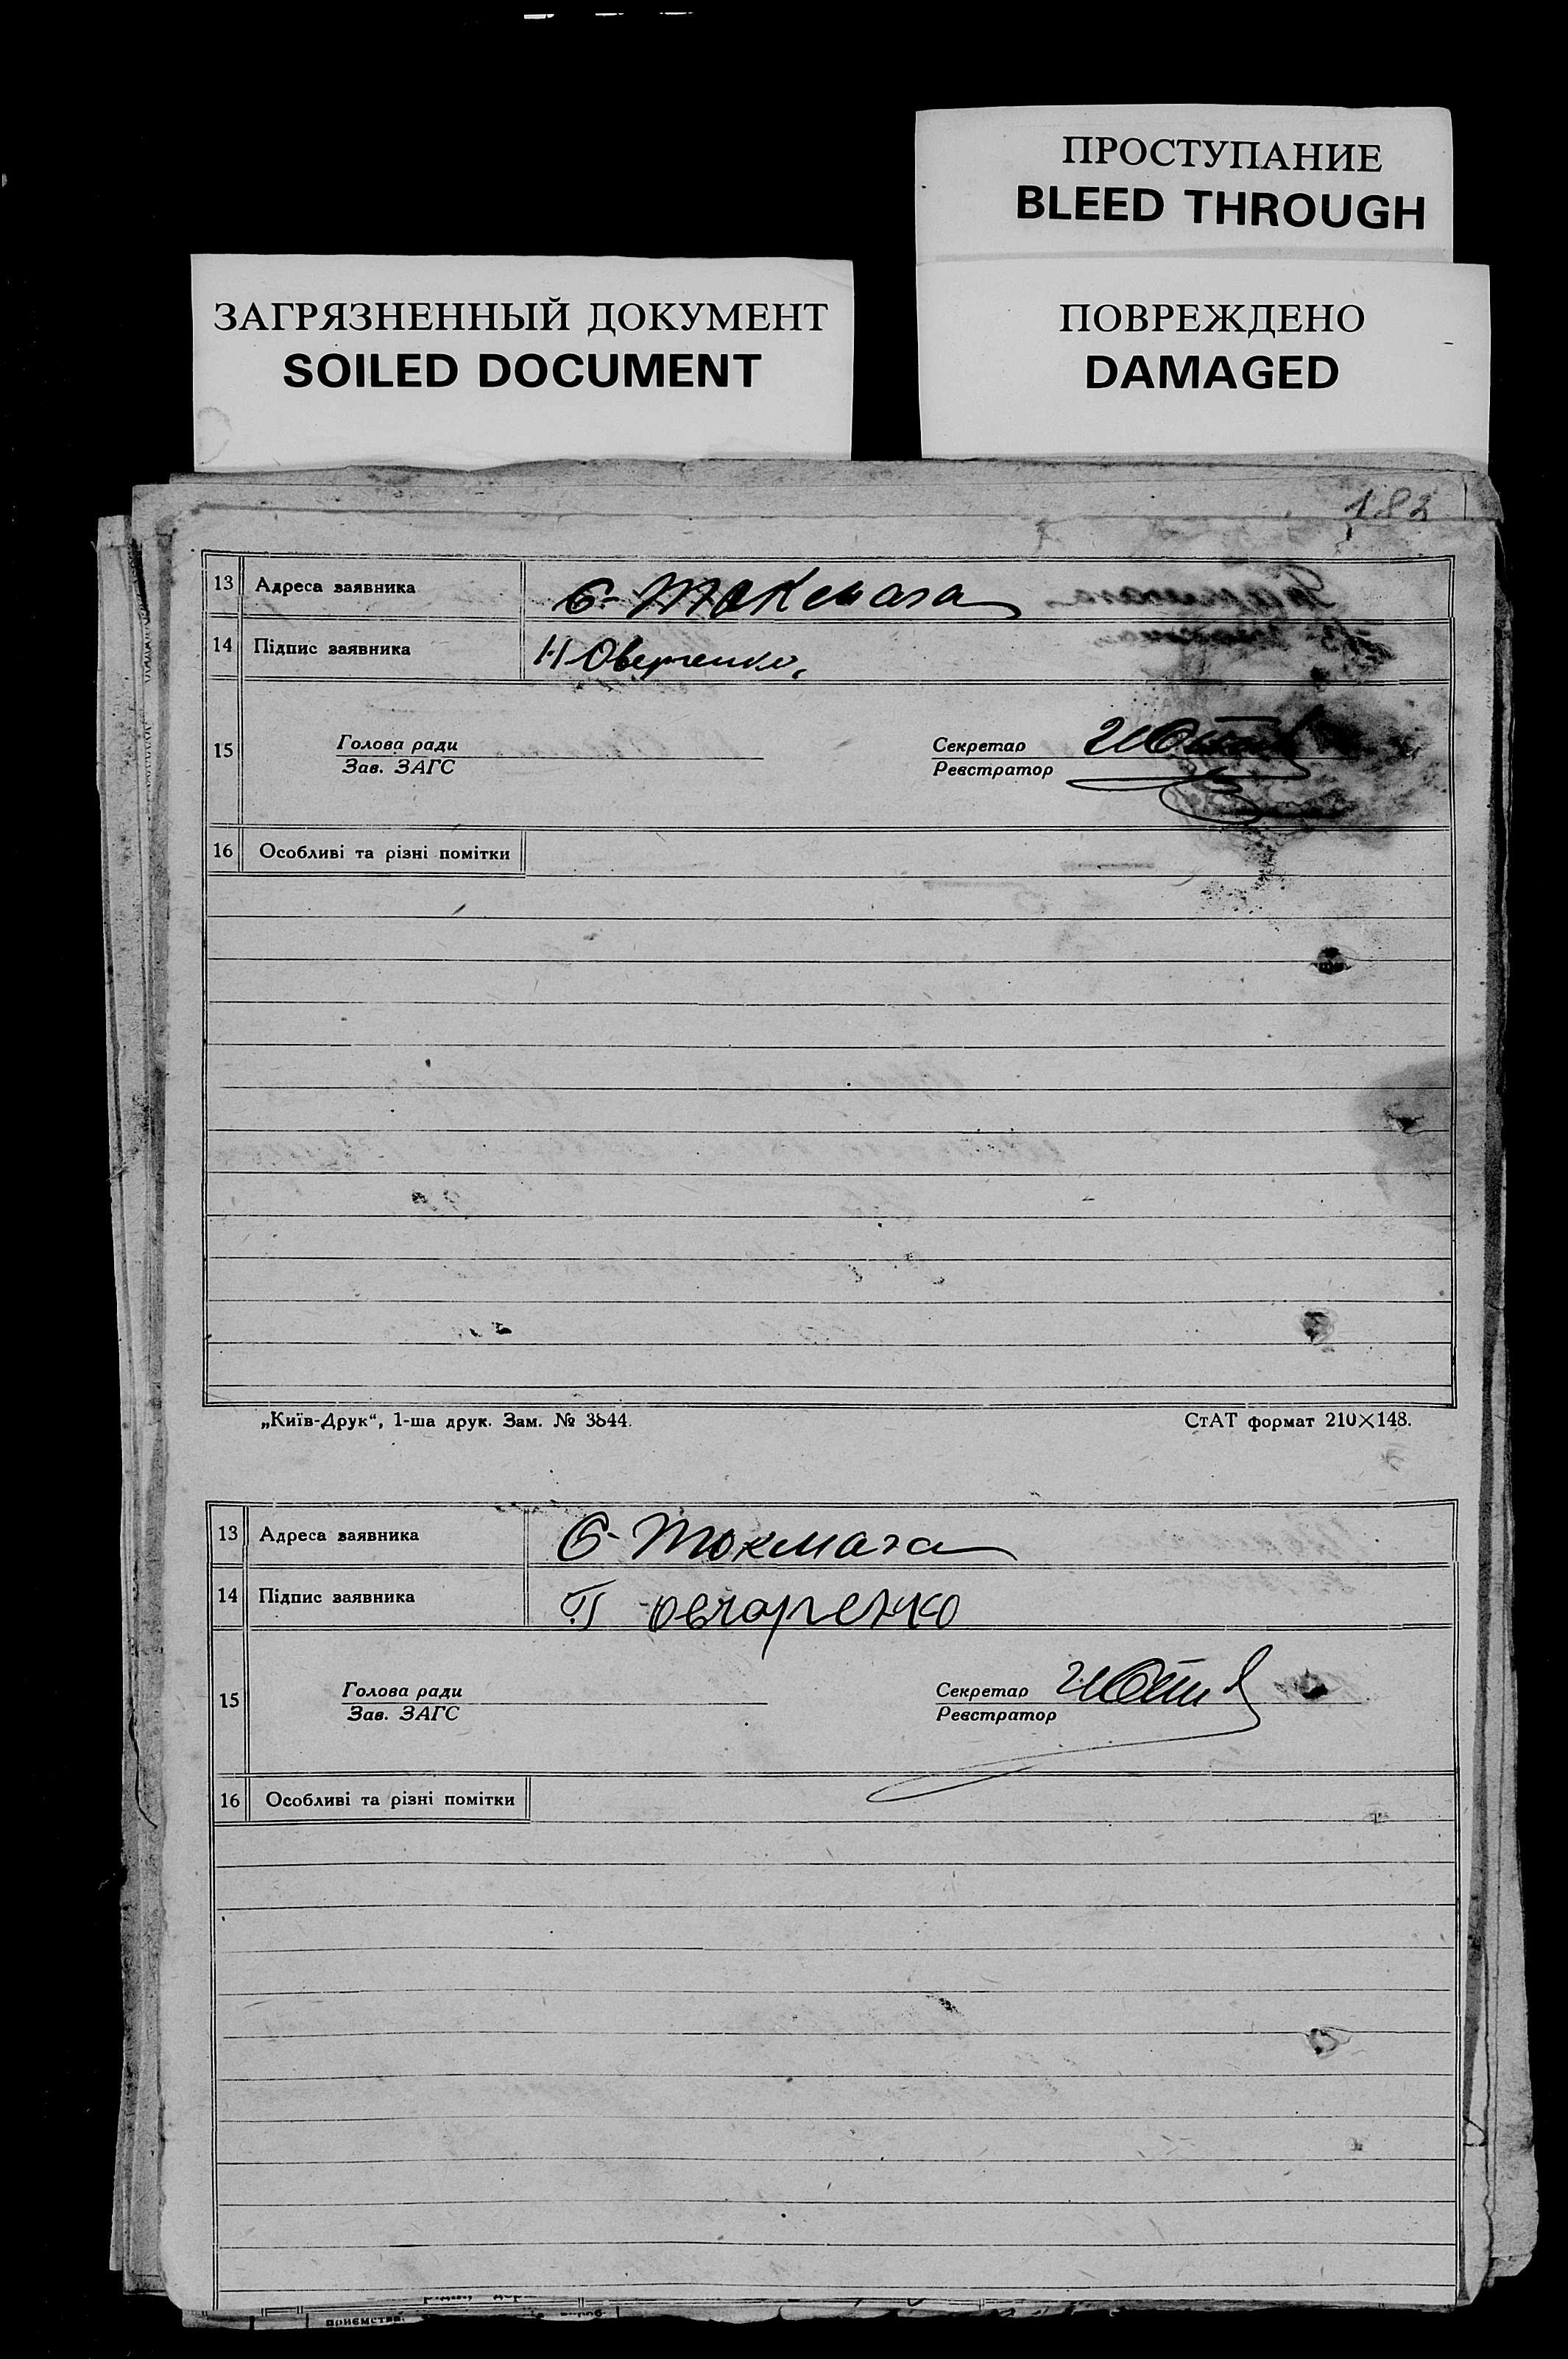 ПРОСТУПАНИЕ
BLEED THROUGH
ЗАГРЯЗНЕННЫЙ ДОКУМЕНТ
SOILED DOCUMENT
ПОВРЕЖДЕНО
DAMAGED
182
13 Адреса заявника Б-Токмага
14 Підпис заявника Н
15 Голова ради Секретар
Зав. ЗАГС Реєстратор
16 Особливі та різні помітки
„Київ-Друк“, 1-ша друк. Зам. № 3844. СтАТ формат 210×148.
13 Адреса заявника Б-Токмага
14 Підпис заявника П овчаренко
15 Голова ради Секретар
Зав. ЗАГС Реєстратор
16 Особливі та різні помітки
приємства